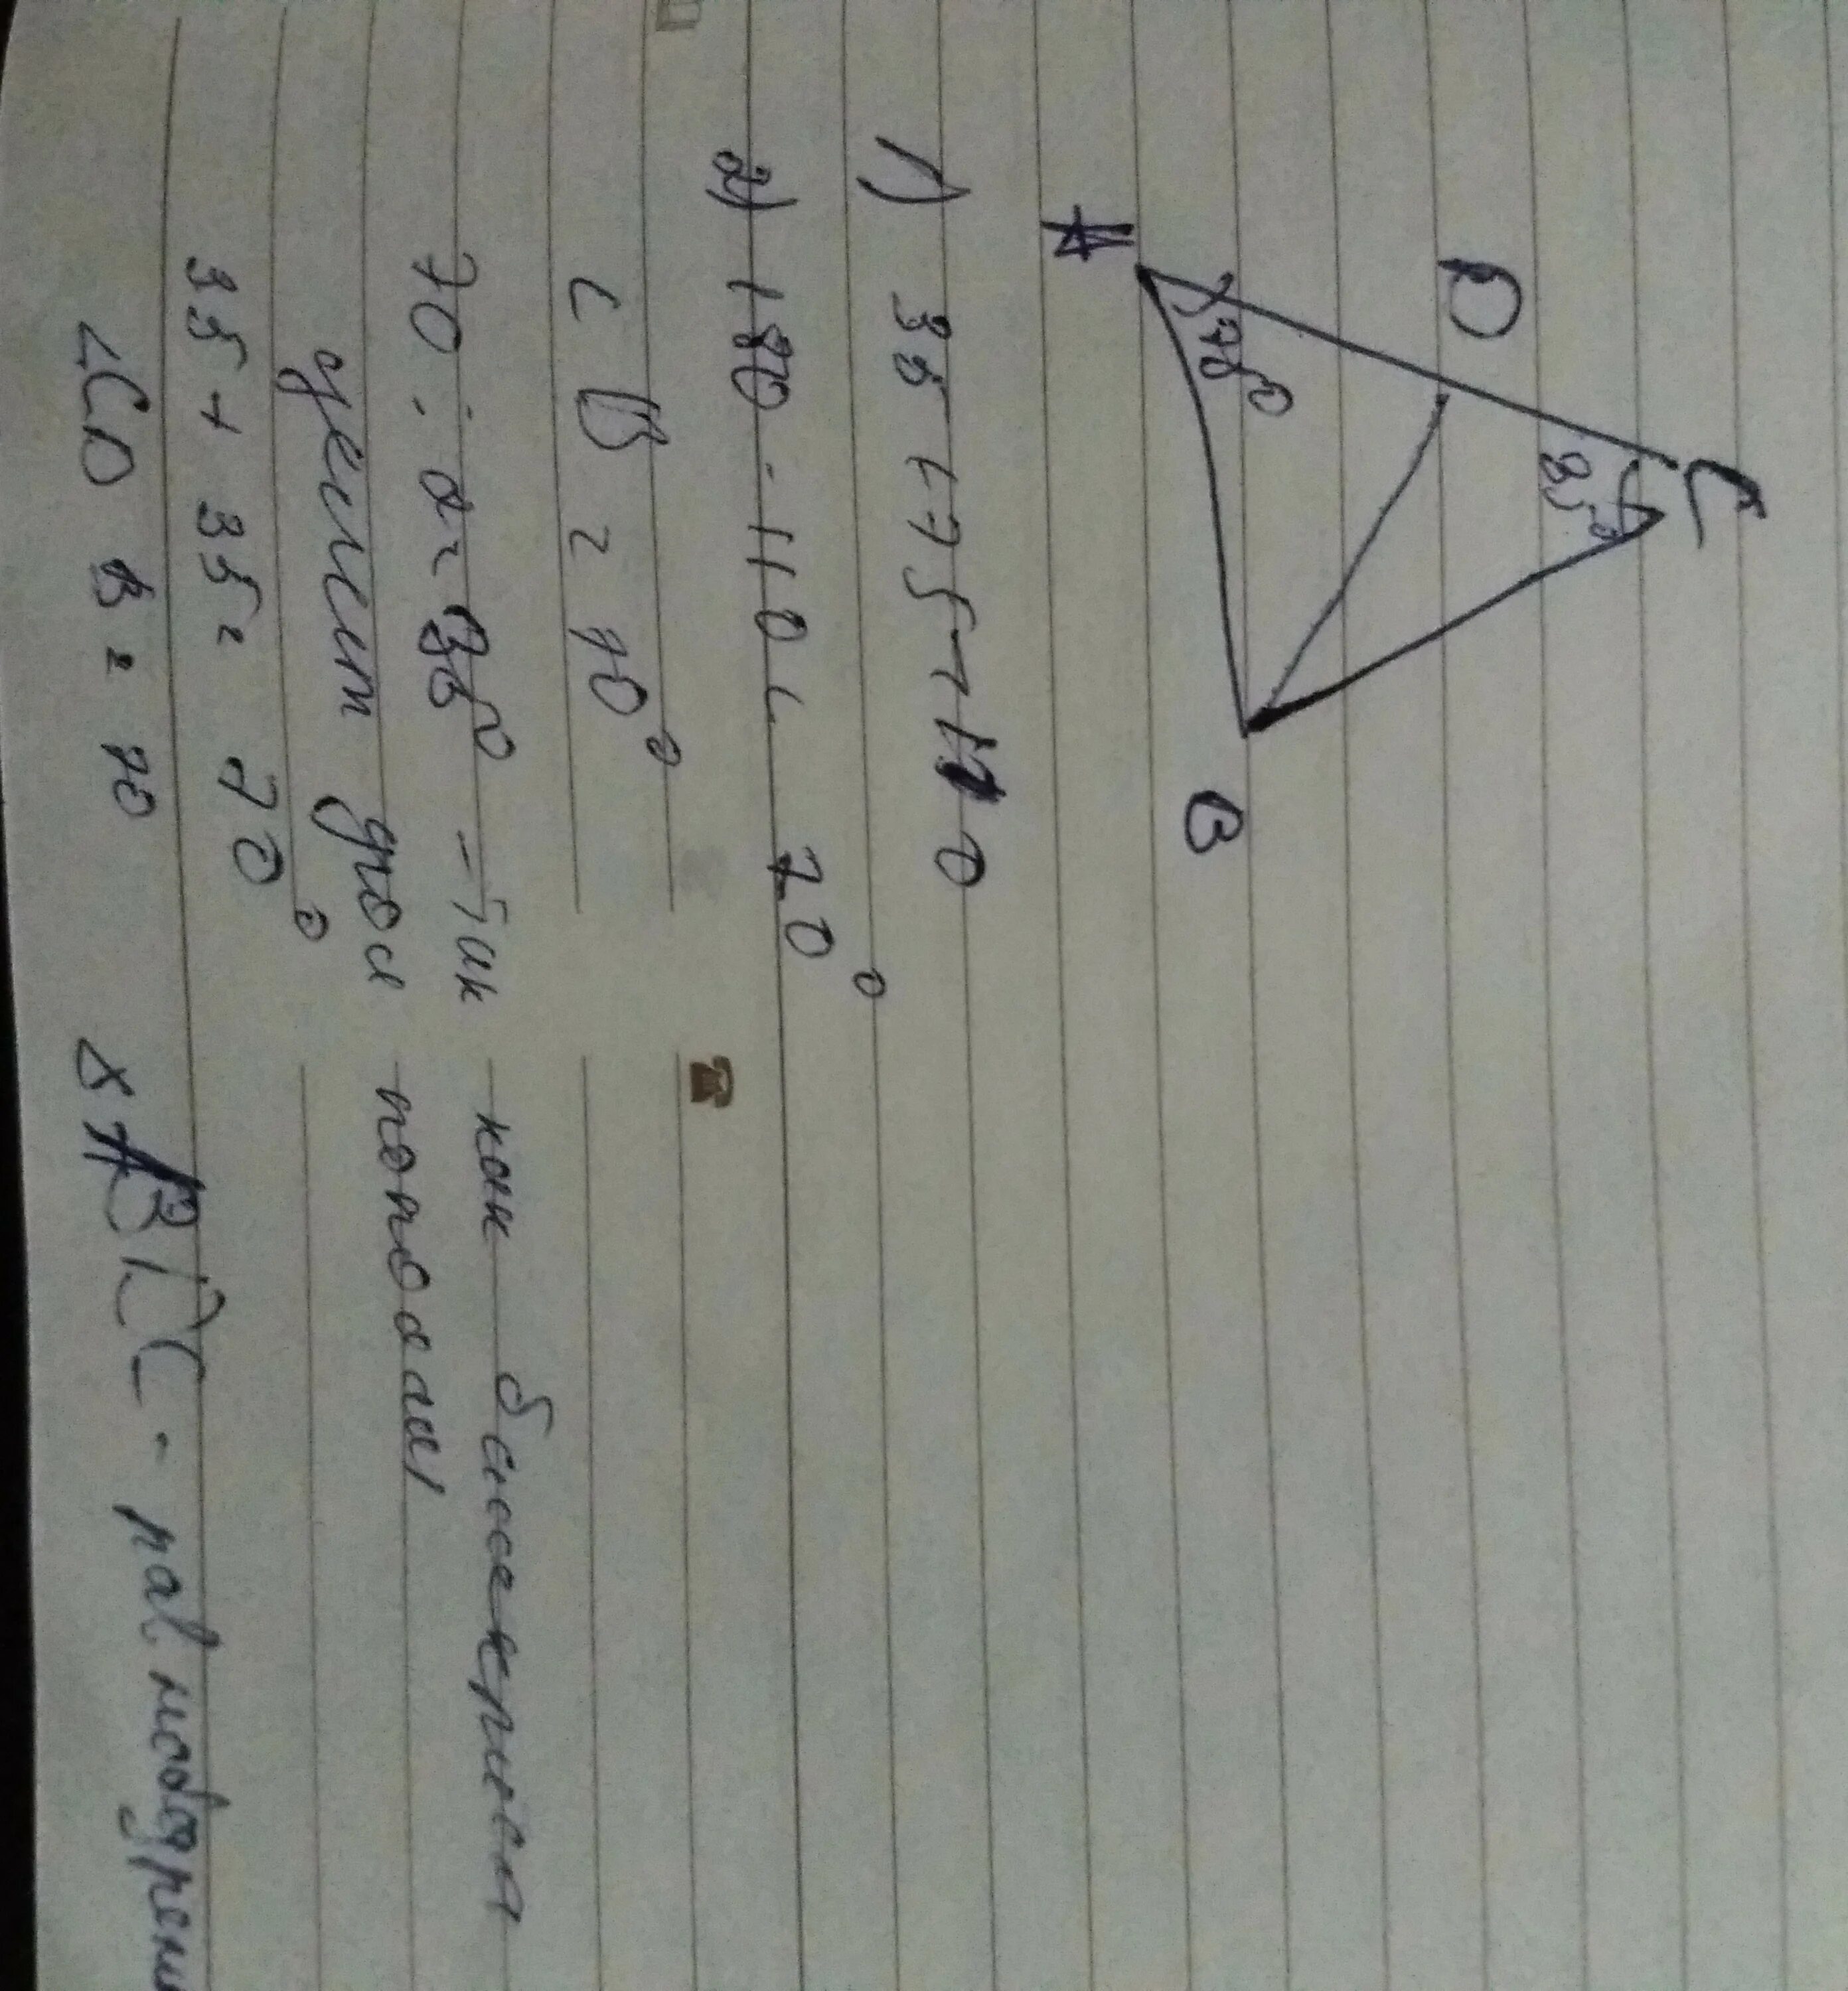 C
D
35°
75°
A
B
1) 35+75=110
2) 180-110= 70°
∠B = 70°
70:2=35° - так как биссектриса
делит угол пополам
35+35= 70°
∠CDB = 70